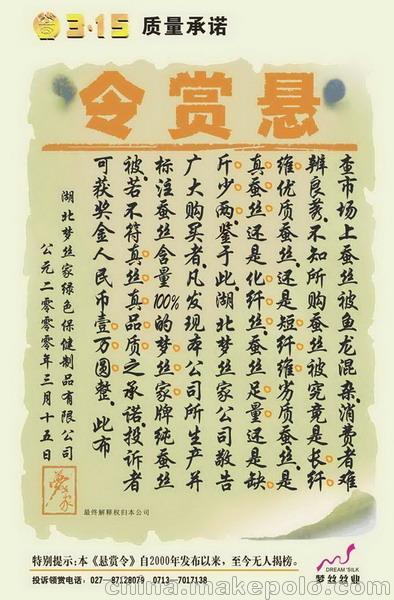 3·15 质量承诺
悬赏令
查市场上蚕丝被鱼龙混杂,消费者难
辨良莠,不知所购蚕丝被究竟是长纤
维优质蚕丝。还是短纤维劣质蚕丝。是
真蚕丝。还是化纤丝。蚕丝足量。还是缺
斤少两。鉴于此,湖北梦丝家公司敬告
广大购买者,凡发现本公司所生产并
标注蚕丝含量100%的梦丝家牌纯蚕丝
被,若不符真丝真品质之承诺,投诉者
可获奖金人民币壹万圆整。此布
湖北梦丝家绿色保健制品有限公司
公元二〇〇〇年三月十五日
最终解释权归本公司
特别提示:本《悬赏令》自2000年发布以来,至今无人揭榜。
投诉领赏电话:027-87128079 0713-7017138
DREAM'SILK
梦丝丝业
china.makepolo.com